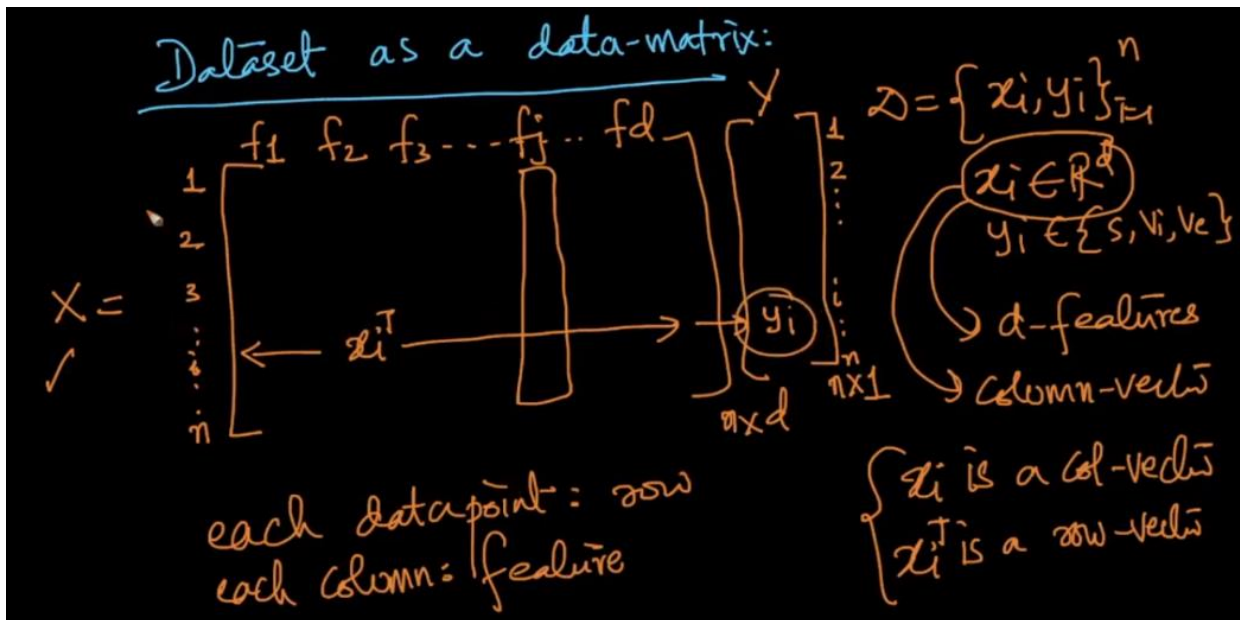 Dataset as a data-matrix:
f1 f2 f3 --- fj .. fd
Y
D = { xi, yi }ⁿ i=1
1
2
3
:
i
:
n
X =
✓
xiᵀ
n×d
yi
1
2
:
i
:
n
n×1
xi ∈ ℝᵈ
yi ∈ {S, Vi, Ve}
d-features
column-vector
each datapoint: row
each column: feature
xi is a col-vector
xiᵀ is a row-vector